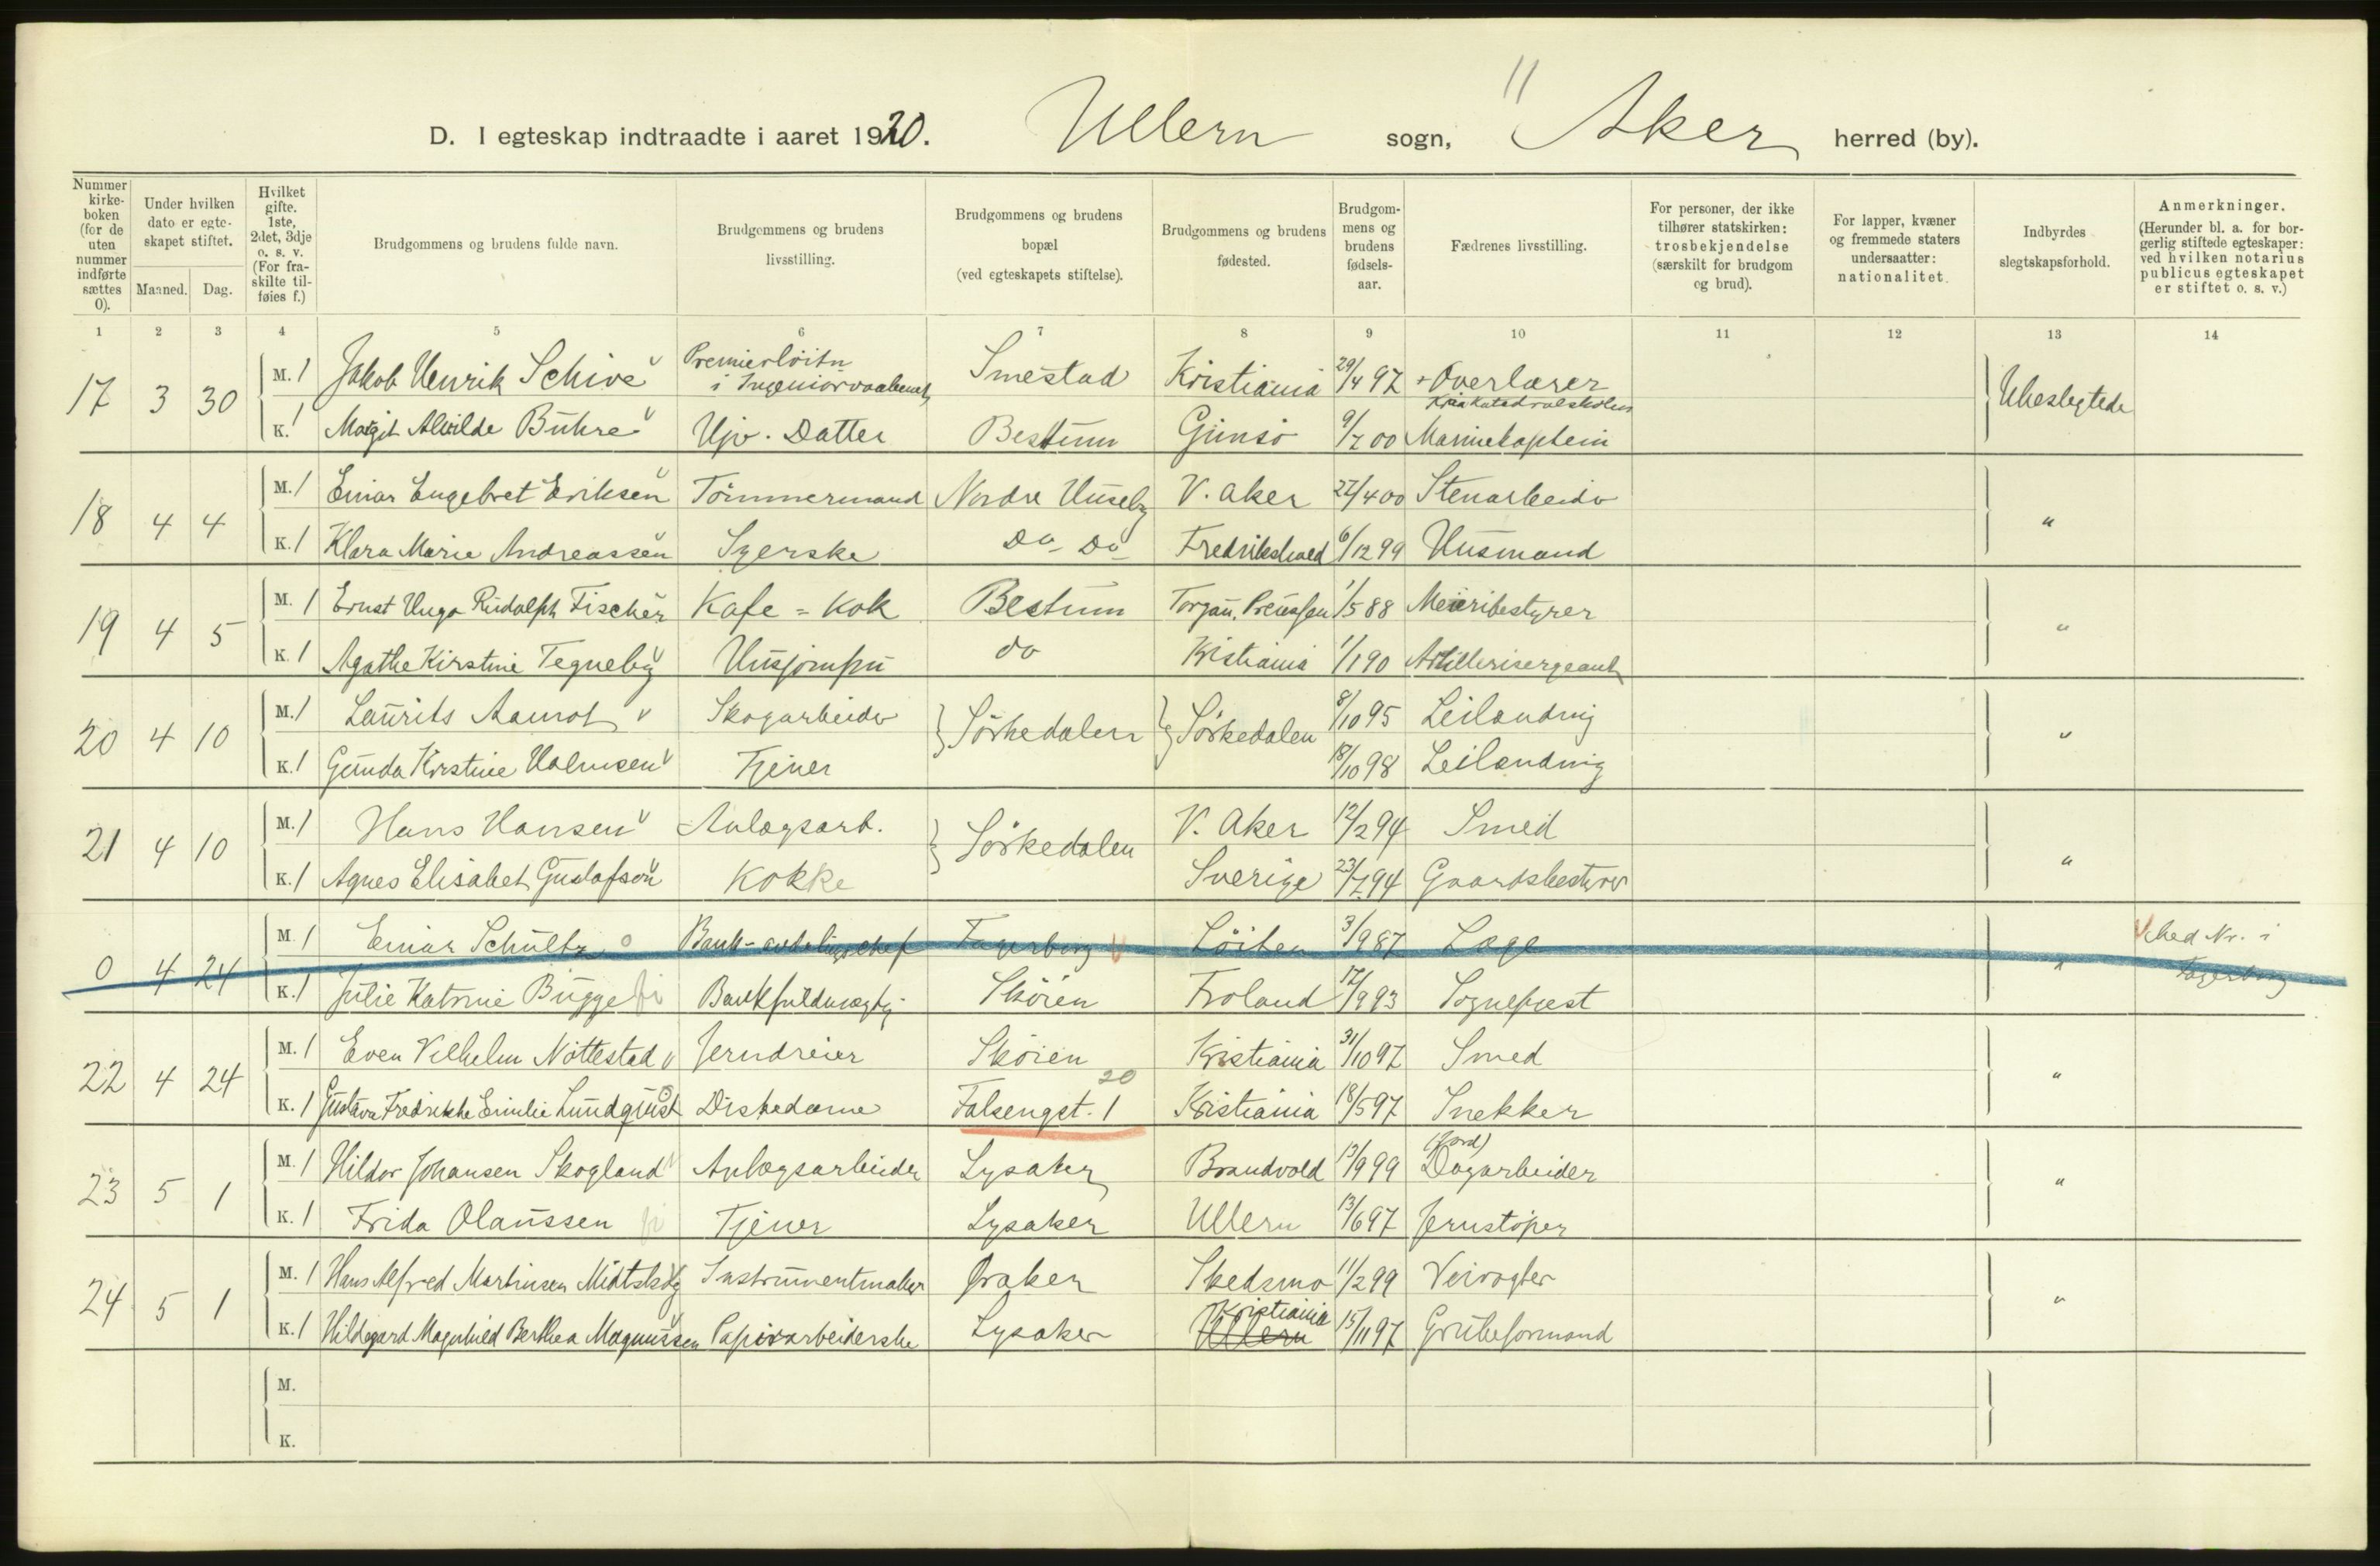 11
D. I egteskap indtraadte i aaret 1920. Ullern sogn, Aker herred (by).
Nummer kirke-boken (for de uten nummer indførte sættes 0).
Under hvilken dato er egte-skapet stiftet.
Maaned. Dag.
Hvilket gifte. 1ste, 2det, 3dje o. s. v. (For fra-skilte til-føies f.)
Brudgommens og brudens fulde navn.
Brudgommens og brudens livsstilling.
Brudgommens og brudens bopæl (ved egteskapets stiftelse).
Brudgommens og brudens fødested.
Brudgom-mens og brudens fødsels-aar.
Fædrenes livsstilling.
For personer, der ikke tilhører statskirken: trosbekjendelse (særskilt for brudgom og brud).
For lapper, kvæner og fremmede staters undersaatter: nationalitet.
Indbyrdes slegtskapsforhold.
Anmerkninger. (Herunder bl. a. for bor-gerlig stiftede egteskaper: ved hvilken notarius publicus egteskapet er stiftet o. s. v.)
1 2 3 4 5 6 7 8 9 10 11 12 13 14
17 3 30 M. 1 Jakob Henrik Schive Premierløitn i Ingeniørvaabenet Smestad Kristiania 29/4 97 + Overlærer Kria Katedralskolen Ubeslegtede
K. 1 Margit Alvilde Buhre Hjv. Datter Bestum Gimsø 9/7 00 Marinekaptein
18 4 4 M. 1 Einar Engebret Eriksen Tømmermand Nordre Huseby V. Aker 22/4 00 Stenarbeider "
K. 1 Klara Marie Andreassen Syerske Do Do Fredrikshald 6/12 99 Husmand
19 4 5 M. 1 Ernst Hugo Rudolph Fischer Kafe = Kok Bestum Torgau, Preussen 1/5 88 Meieribestyrer "
K. 1 Agathe Kirstine Tegneby Husjomfru do Kristiania 1/1 90 Artillerisergeant
20 4 10 M. 1 Laurits Aamot Skogarbeider Sørkedalen Sørkedalen 8/10 95 Leilænding "
K. 1 Gunda Kirstine Halmsen Tjener 18/10 98 Leilænding
21 4 10 M. 1 Hans Hansen Anlægsarb. Sørkedalen V. Aker 12/2 94 Smed "
K. 1 Agnes Elisabet Gustafson Kokke Sverige 23/7 94 Gaardsbestyrer
0 4 24 M. 1 Einar Schultz Bank-avdelingschef Fagerborg Løiten 3/9 87 Læge " hed Nr. i Fagerborg
K. 1 Julie Katrine Bugge Bankfuldmægtig Skøien Froland 17/9 93 Sogneprest
22 4 24 M. 1 Even Vilhelm Nøttestad Jerndreier Skøien Kristiania 31/10 97 Smed "
K. 1 Gustava Fredrikke Emilie Lundquist Diskedame Falsengst. 1 20 Kristiania 18/5 97 Snekker
23 5 1 M. 1 Hildor Johansen Skogland Anlægsarbeider Lysaker Brandvold 13/9 99 (jord) Dagarbeider "
K. 1 Frida Olaussen Tjener Lysaker Ullern 13/6 97 Jernstøper
24 5 1 M. 1 Hans Alfred Martinsen Midtskog Instrumentmaker Øraker Skedsmo 11/2 99 Veivogter "
K. 1 Hildegard Magnhild Berthea Magnussen Papirarbeiderske Lysaker Kristiania Ullern 15/11 97 Grubeformand
M.
K.